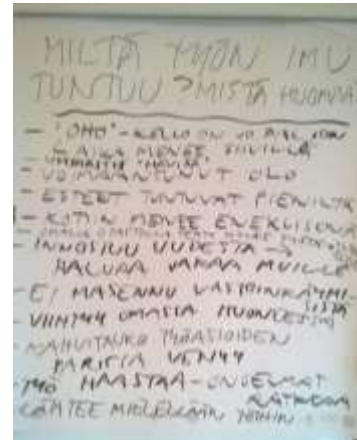 MILTÄ TYÖN IMU
TUNTUU? MISTÄ HUOMAA
- "OHO" - KELLO ON JO
AIKA MENEE SIIVILLÄ
- VOIMAANTUNUT OLO
- ESTEET TUNTUVAT PIENILTÄ
- KOTIIN MENEE ENERGISENÄ
- INNOSTUU UUDESTA →
HALUAA JAKAA MUILLE
- EI MASENNU VASTOINKÄYMI-
SISTÄ
- VIIHTYY OMASSA HUONEESSA
- KAHVITAUKO TYÖASIOIDEN
PARISSA VENYY
- TYÖ HAASTAA - ONGELMAT
RATKOVA
LÄHTEE MIELELLÄÄN TÖIHIN